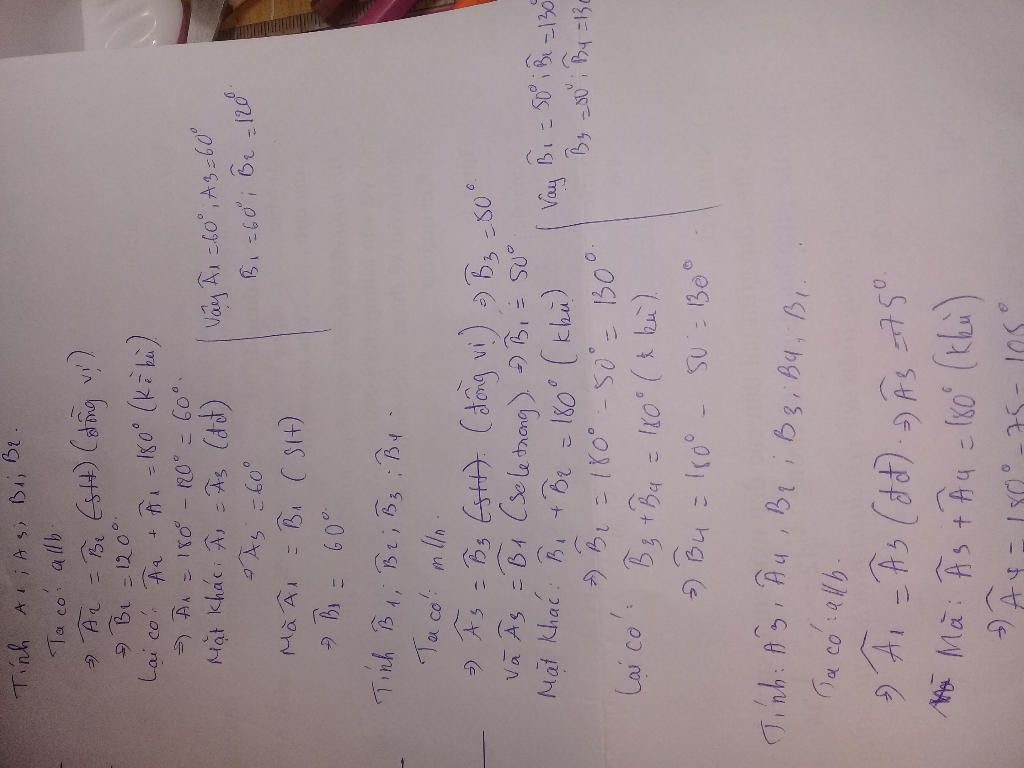 Tính A1; A3; B1; B2.
Ta có: a//b
⇒ Â2 = B̂2 (đồng vị)
⇒ B̂2 = 120°
Lại có: Â2 + Â1 = 180° (kề bù)
⇒ Â1 = 180° - 120° = 60°.
Mặt khác: Â1 = Â3 (đđ)
⇒ Â3 = 60°
Mà Â1 = B̂1 (SLT)
⇒ B̂1 = 60°
Vậy Â1 = 60°; A3 = 60°
B̂1 = 60°; B̂2 = 120°.
Tính B̂1; B̂2; B̂3; B̂4.
Ta có: m//n
⇒ Â3 = B̂3 (đồng vị) ⇒ B̂3 = 50°.
và Â3 = B̂1 (So le trong) ⇒ B̂1 = 50°
Mặt khác: B̂1 + B̂2 = 180° (kbù)
⇒ B̂2 = 180° - 50° = 130°.
Lại có: B̂3 + B̂4 = 180° (k bù)
⇒ B̂4 = 180° - 50 = 130°
Vậy B̂1 = 50°; B̂2 = 130°
B̂3 = 50°; B̂4 = 130
Tính: Â3; Â4; B2; B3; B4; B1.
Ta có: a//b.
⇒ Â1 = Â3 (đđ) ⇒ Â3 = 75°
Mà: Â3 + Â4 = 180° (kbù)
⇒ Â4 = 180° - 75 = 105°